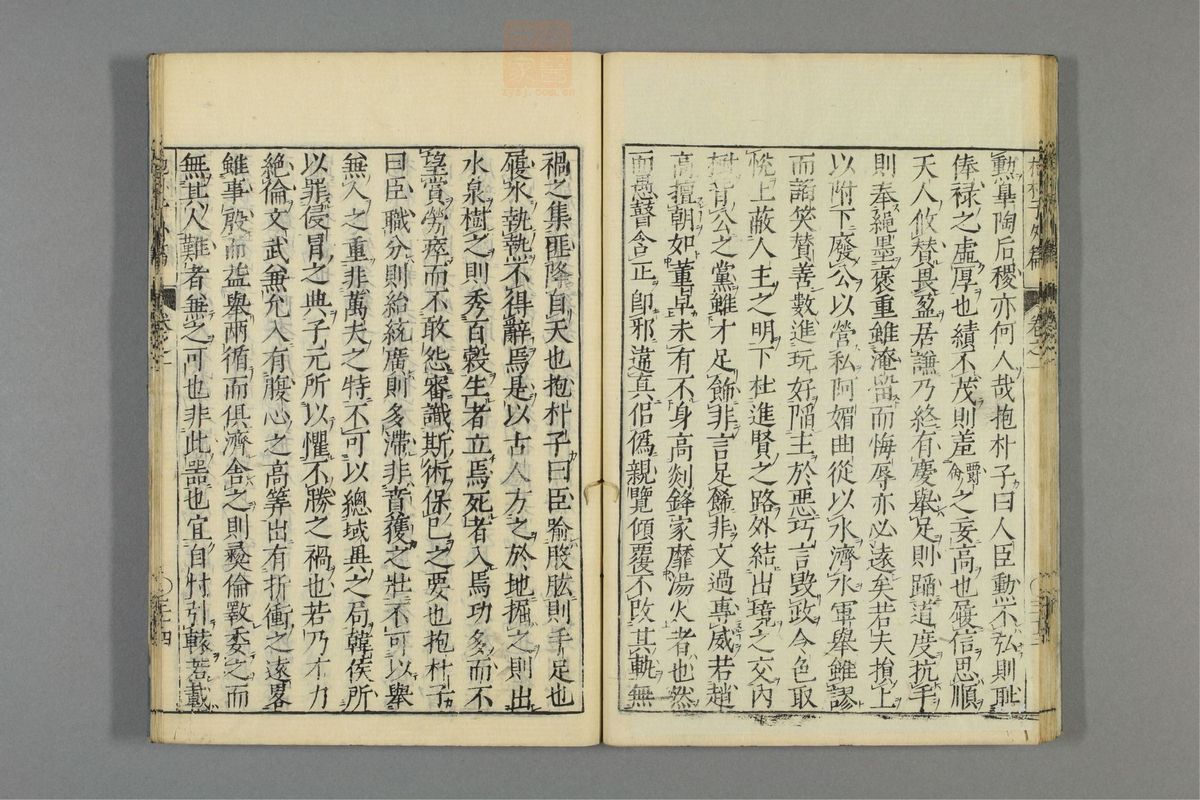 勲臯陶后稷亦何人哉抱朴子曰人臣勲不弘則恥
俸禄之虚厚也績不茂則羞爵命之妄高也履信思順
天人攸賛畏盈居謙乃終有慶舉足則蹈道度抗手
則奉繩墨褒重雖淹留而悔辱亦必遠矣若夫損上
以附下廢公以營私阿媚曲從以水濟水君舉雖謬
而諂笑賛善數進玩好陷主於惡巧言毀政令色取
悅上蔽人主之明下杜進賢之路外結出境之交内
樹背公之黨雖才足飾非言足飾非文過專威若趙
高擅朝如董卓未有不身高剡鋒家靡湯火者也然
而愚瞽舍正卽邪違真侣僞親覽傾覆不改其軌
禍之集匪降自天也抱朴子曰臣喻股肱則手足也
履氷執熱不得辭焉是以古人方之於地掘之則出
水泉樹之則秀百穀生者立焉死者入焉功多而不
望賞勞瘁而不敢怨審識斯術保已之要也抱朴子
曰臣職分則紿統廣則多滯非賁獲之壯不可以舉
無人之重非萬夫之特不可以總域異之局韓侯所
以罪侵冒之典子元所以懼不勝之禍也若乃才力
絶倫文武無允入有腹心之高筭出有折衝之遠畧
雖事殷而益舉兩循而俱濟舍之則彜倫斁委之而
無其人難者無之可也非此噐也宜自忖引轅若載
抱朴子外篇
卷之一